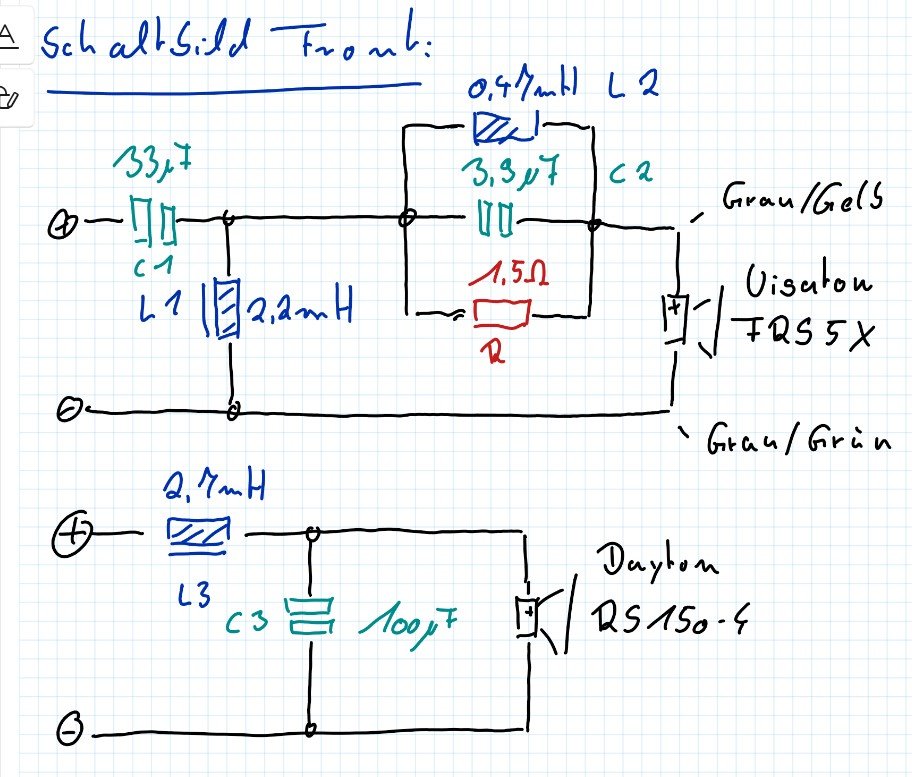 Schaltbild Front:
0,47mH L2
33µF
3,9µF C2
Grau/Gelb
C1
1,5Ω
L1 2,2mH
Visaton
FRS 5 X
R
Grau/Grün
2,7mH
L3
Dayton
RS150-4
C3 100µF